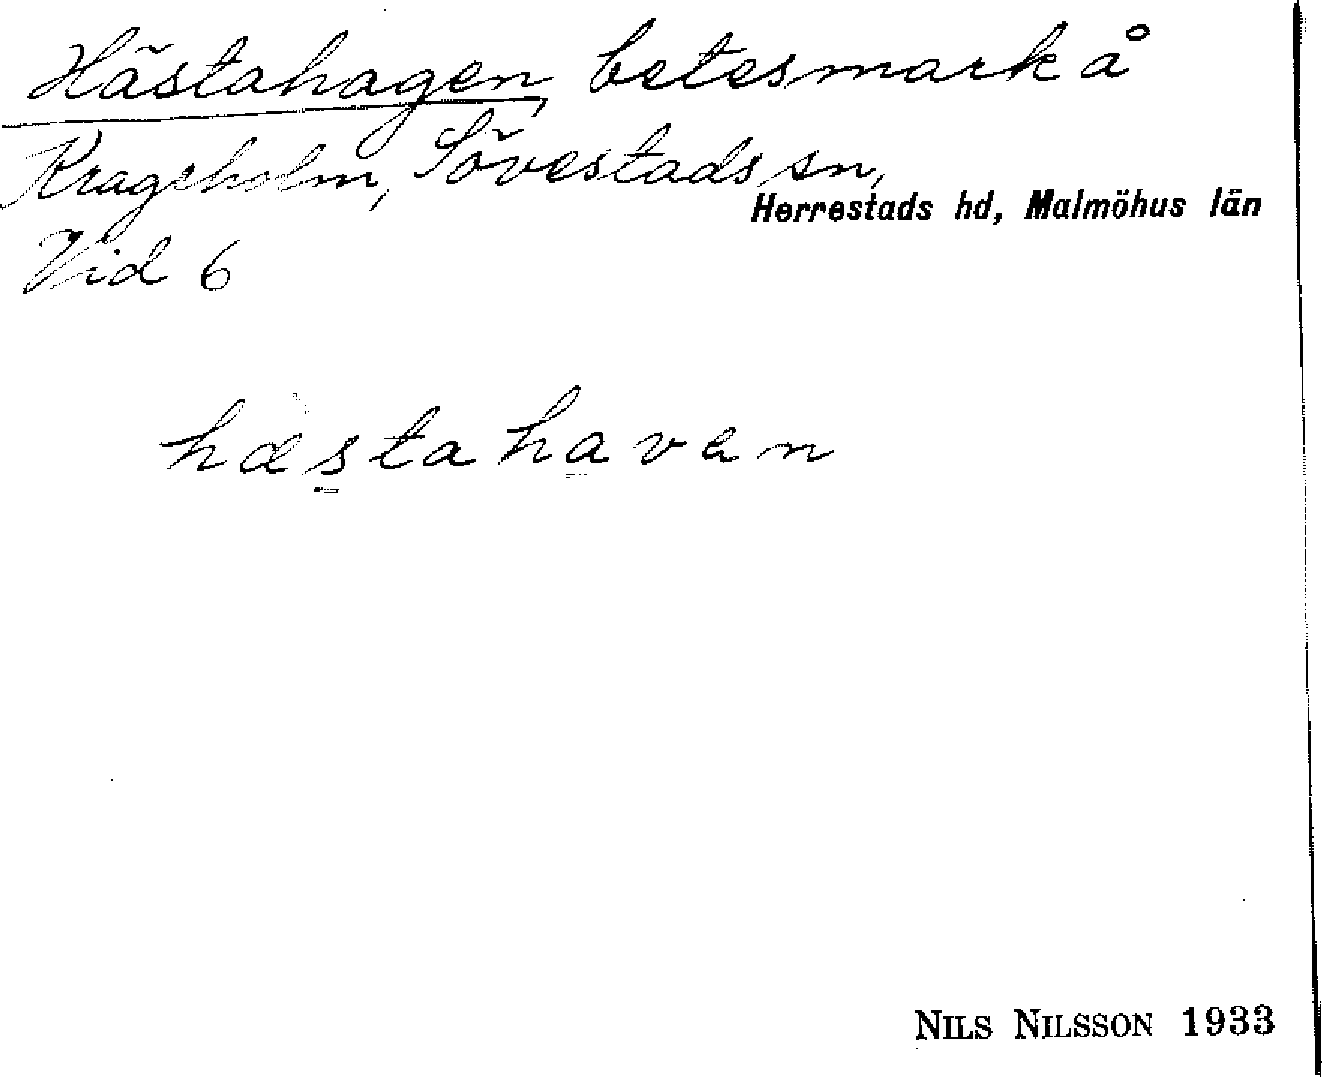 Hästahagen, betesmark å
Kragsholm, Sövestads sn,
Herrestads hd, Malmöhus län
Vid 6
hæstahaven
NILS NILSSON 1933